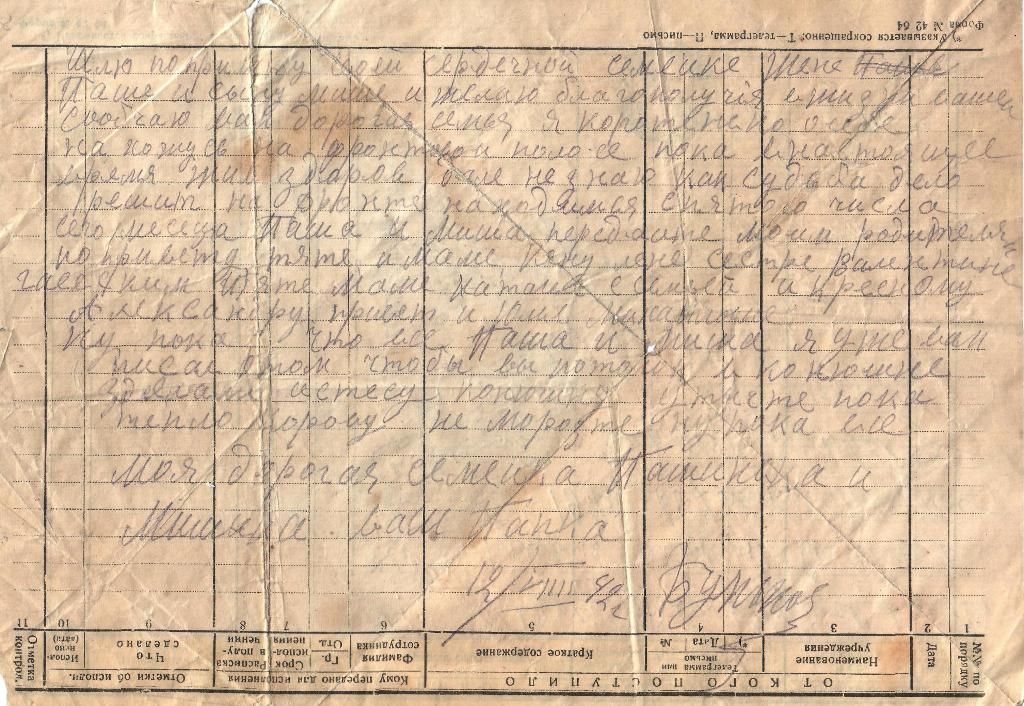 Шлю по привету своей сердечной семейке жене
Паше и сыну Мише и желаю благополучия в жизни вашей
сообщаю вам дорогая семья я коротенько о себе
нахожусь на фронтовой полосе пока в настоящее
время жив здоров дале не знаю как судьба дело
решит на фронте находимся с пятого числа
сего месяца Паша и Миша передайте моим родителям
по привету тяте и маме лене сестре Валентине
тяте маме Наташе с семьей и кресному
Александру привет и
Ну пока что все Паша и Миша я уже вам
писал о том чтобы вы потолок в конюшне
здялали конюшню пока
тепло корову не морозте ну пока все
Моя дорогая семейка Пашинька и
Мишинька. ваш Папка
12/VIII 42 г
*) Указывается сокращенно: Т—телеграмма, П—письмо
Форма № 42 64
№№ по порядку
Дата
ОТ КОГО ПОСТУПИЛО
Наименование учреждения
Телеграмма или письмо
*) Дата №
Краткое содержание
Кому передано для исполнения
Фамилия сотрудника
Гр. Отд.
Срок исполнения
Расписка в получении
Отметки об исполн.
Что сделано
Исполнено (дата)
Отметка контрол.
1 2 3 4 5 6 7 8 9 10 11